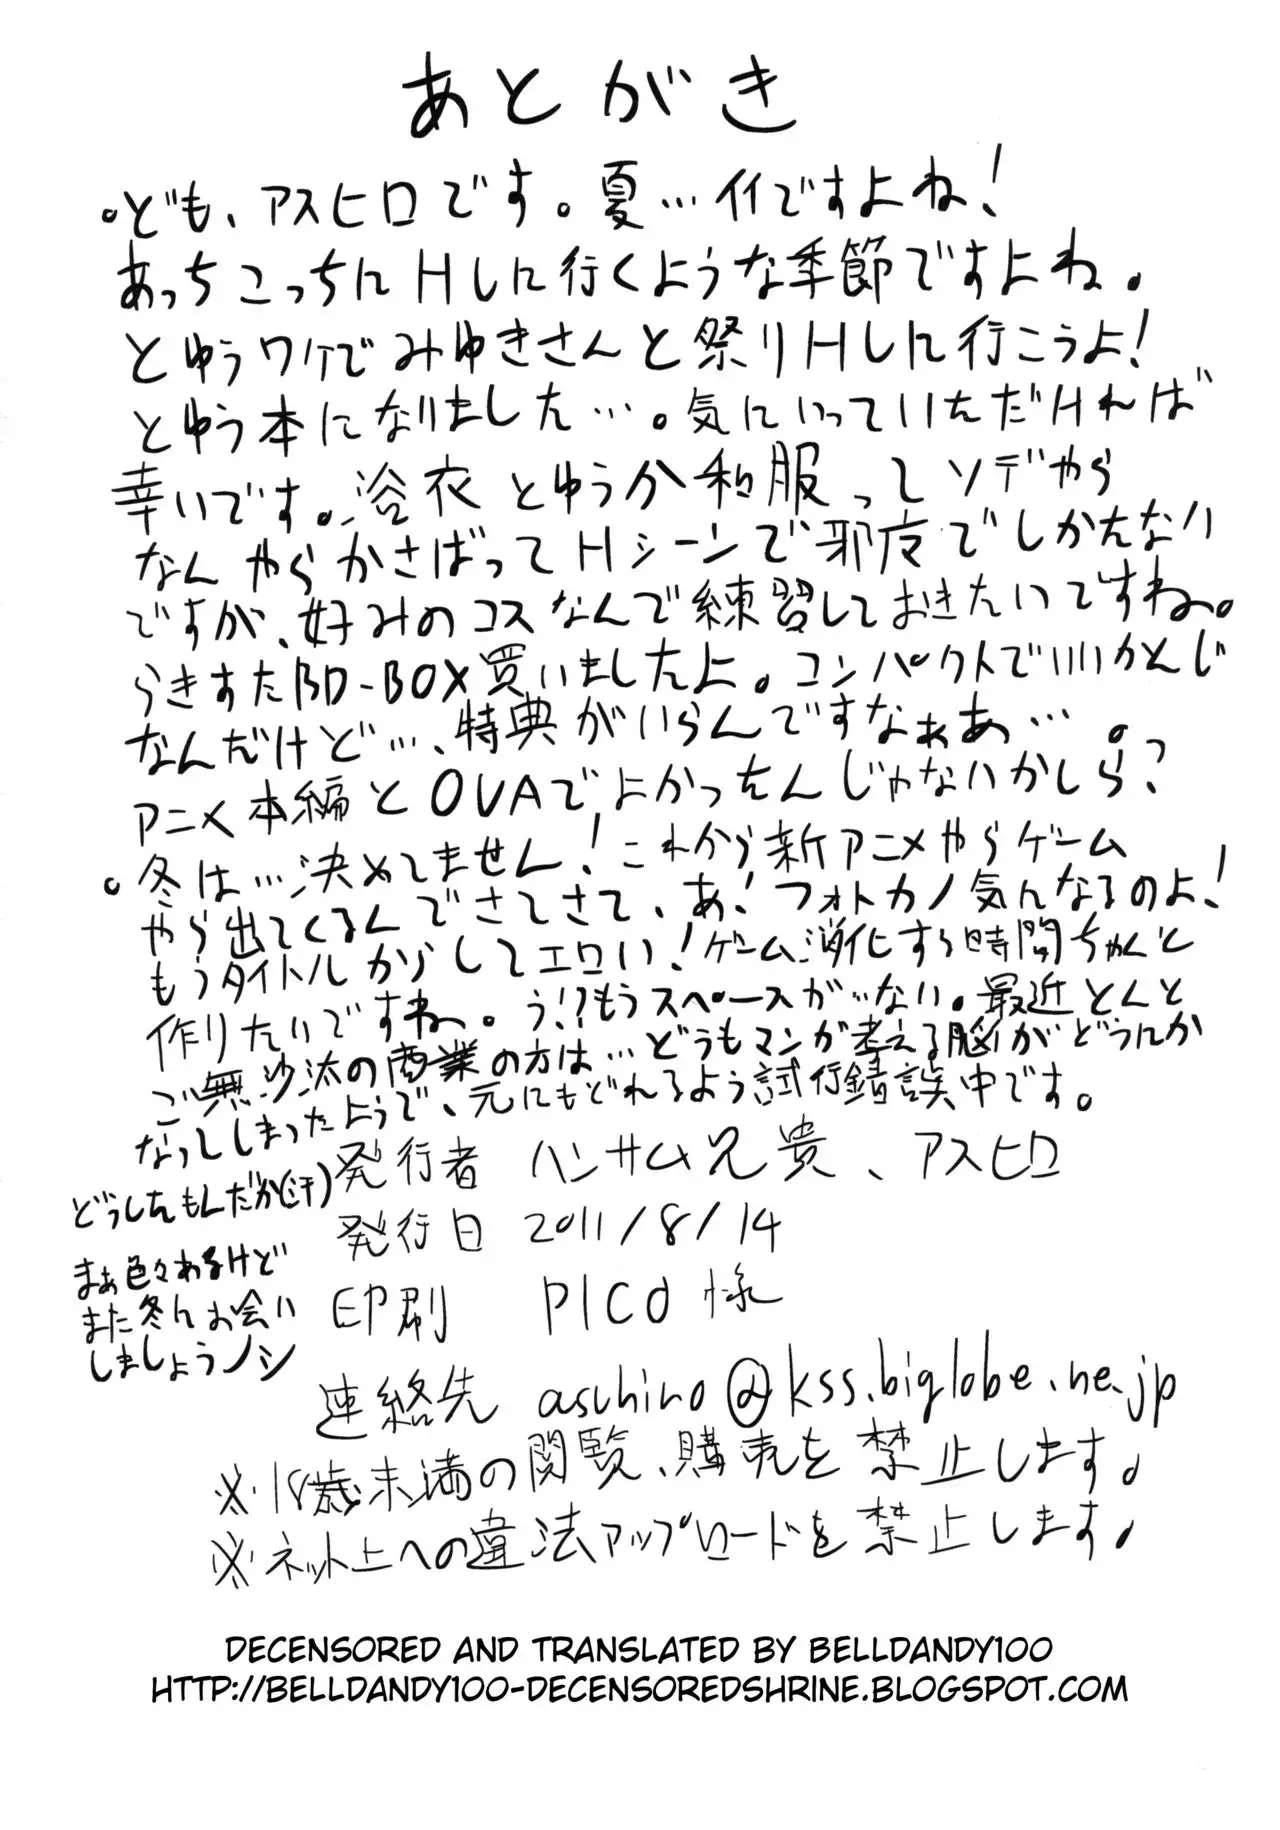 あとがき
。ども、アスヒロです。夏…イイですよね!
あっちこっちにHしに行くような季節ですよね。
とゆうワケでみゆきさんと祭りHしに行こうよ!
とゆう本になりました…。気にいっていただければ
幸いです。浴衣とゆうか和服ってソデやら
なんやらかさばってHシーンで邪魔でしかたない
ですが、好みのコスなんで練習しておきたいですね。
らきすたBD-BOX買いましたよ。コンパクトでいいかんじ
なんだけど…、特典がいらんですなぁあ…。
アニメ本編とOVAでよかったんじゃないかしら?
。冬は…決めてません!これから新アニメやらゲーム
やら出てくるんでさてさて、あ!フォトカノ気になるのよ!
もうタイトルからしてエロい!ゲーム消化する時間ちゃんと
作りたいですね。う!?もうスペースがない。最近とんと
ご無沙汰の商業の方は…どうもマンガ考える脳がどうにか
なってしまったようで、元にもどれるよう試行錯誤中です。
どうしたもんだか(汗)
まぁ色々あるけど
また冬にお会い
しましょうノシ
発行者 ハンサム兄貴、アスヒロ
発行日 2011/8/14
印刷 PICO様
連絡先 asuhiro@kss.biglobe.ne.jp
※18歳未満の閲覧、購売を禁止します。
※ネット上への違法アップロードを禁止します。
DECENSORED AND TRANSLATED BY BELLDANDY100
HTTP://BELLDANDY100-DECENSOREDSHRINE.BLOGSPOT.COM